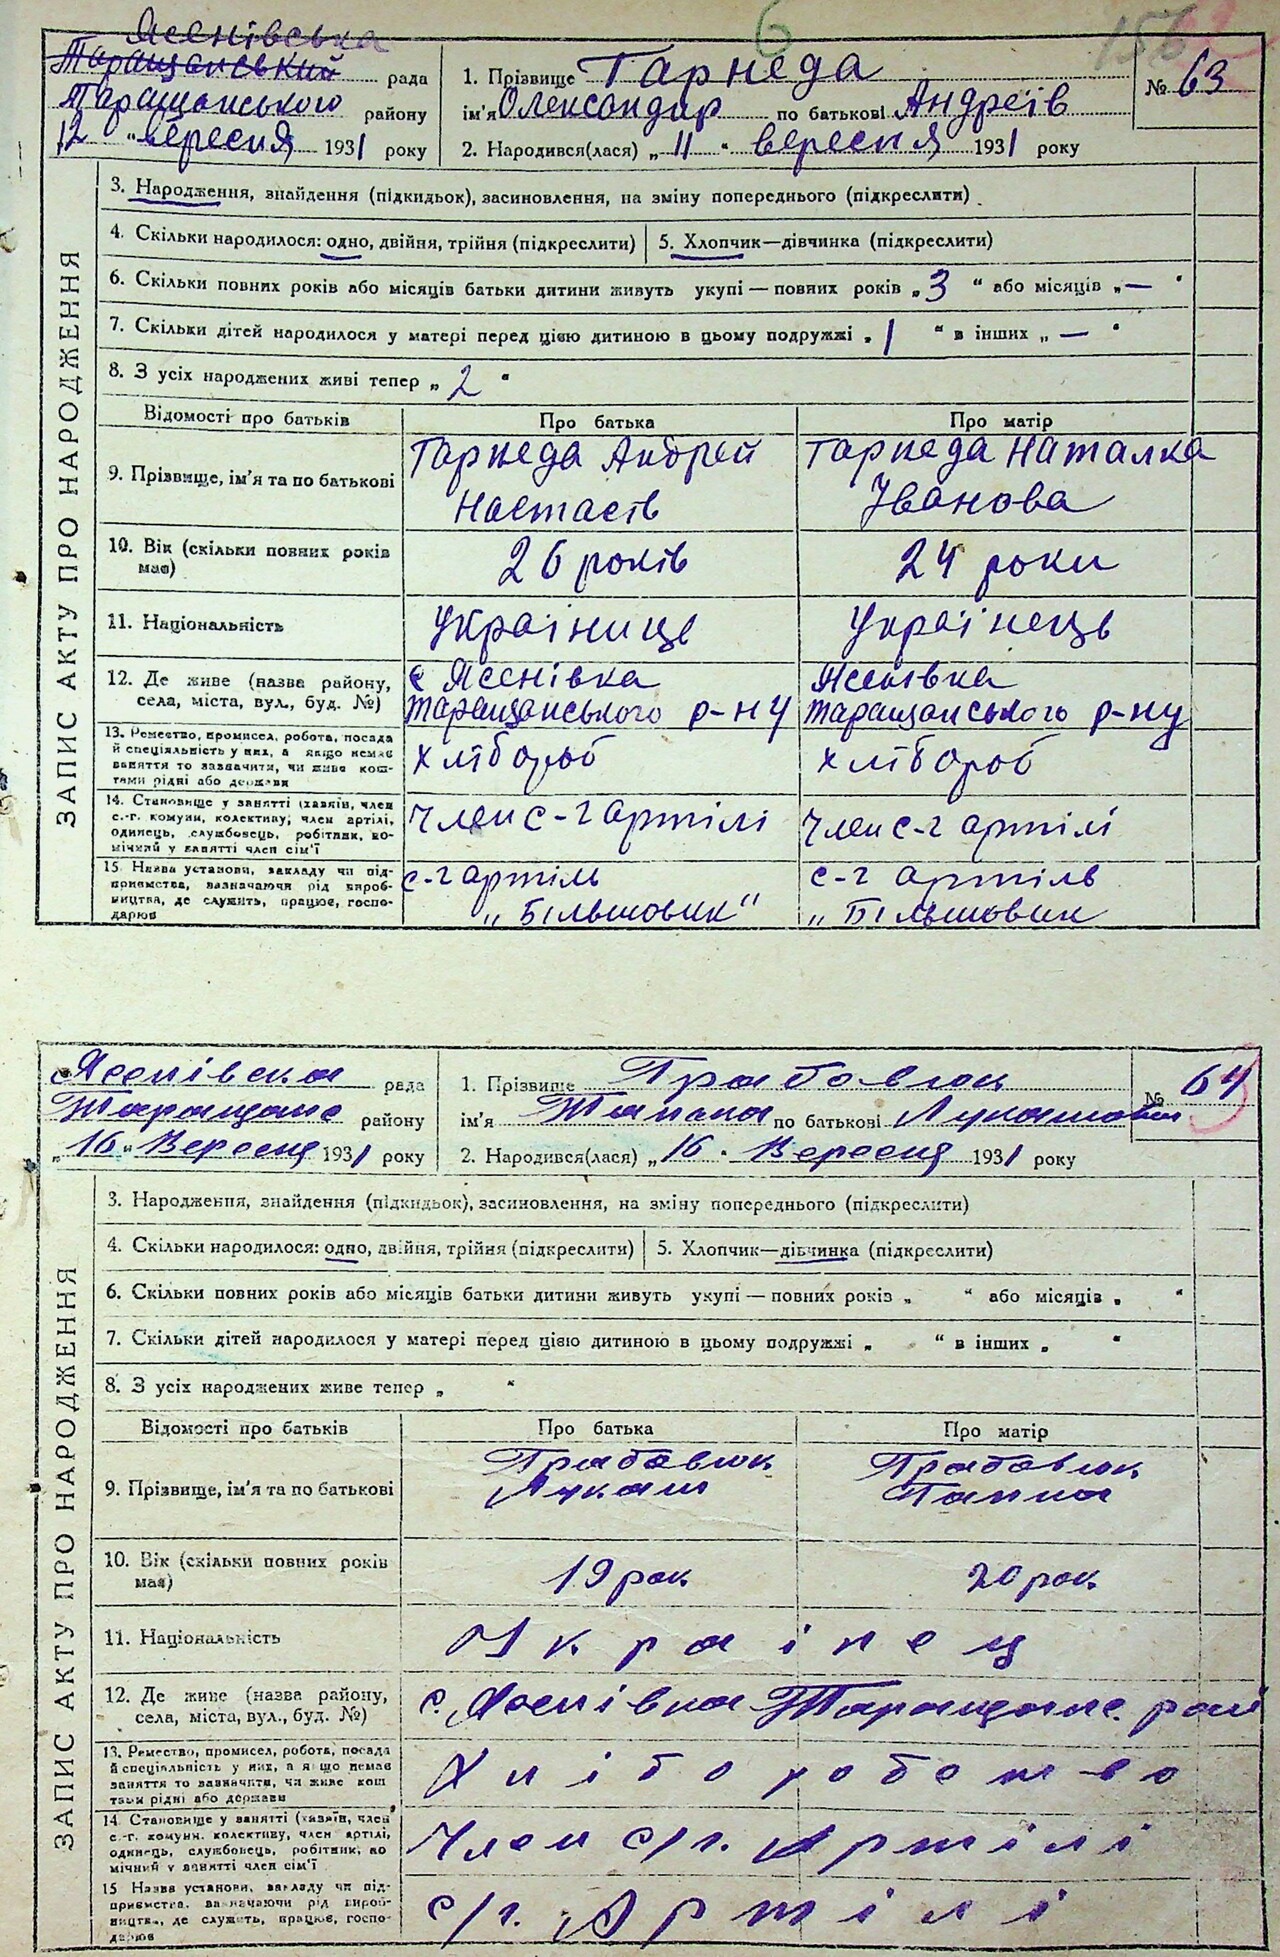 6
156
Ясенівська
Таращанський рада
Таращанського району
12 „ вересня 1931 року
1. Прізвище Гарнеда
ім'я Олександир по батькові Андреїв
2. Народився(лася) „ 11 " вересня 1931 року
№ 63
ЗАПИС АКТУ ПРО НАРОДЖЕННЯ
3. Народження, знайдення (підкидьок), засиновлення, на зміну попереднього (підкреслити)
4. Скільки народилося: одно, двійня, трійня (підкреслити) 5. Хлопчик—дівчинка (підкреслити)
6. Скільки повних років або місяців батьки дитини живуть укупі — повних років „ 3 " або місяців „ — "
7. Скільки дітей народилося у матері перед цією дитиною в цьому подружжі „ 1 " в інших „ — "
8. З усіх народжених живі тепер „ 2 "
Відомості про батьків Про батька Про матір
9. Прізвище, ім'я та по батькові
Гарнеда Андрей
Настасів
Гарнеда Наталка
Іванова
10. Вік (скільки повних років має)
26 років
24 роки
11. Національність
Українице
Українець
12. Де живе (назва району,
села, міста, вул., буд. №)
с Ясенівка
Таращанського р-ну
Ясенівка
Таращанського р-ну
13. Ремество, промисел, робота, посада
й спеціяльність у них, а якщо немає
заняття то зазначити, чи живе кош-
тами рідні або держави
хлібороб
хлібороб
14. Становище у занятті (хазяїн, член
с.-г. комуни, колективу, член артілі,
одинець, службовець, робітник, по-
мічний у занятті член сім'ї
Член с-г артілі
Член с-г артілі
15. Назва установи, закладу чи під-
приємства, зазначаючи рід вироб-
ництва, де служить, працює, госпо-
дарює
с-г артіль
„ Більшовик"
с-г артіль
„ Більшовик
Ясенівска рада
Таращанс району
„ 16 " Вересня 1931 року
1. Прізвище Грабовюк
ім'я Ганна по батькові Лукашова
2. Народився(лася) „ 16 " Вересня 1931 року
№ 64
ЗАПИС АКТУ ПРО НАРОДЖЕННЯ
3. Народження, знайдення (підкидьок), засиновлення, на зміну попереднього (підкреслити)
4. Скільки народилося: одно, двійня, трійня (підкреслити) 5. Хлопчик—дівчинка (підкреслити)
6. Скільки повних років або місяців батьки дитини живуть укупі — повних років „ " або місяців „ "
7. Скільки дітей народилося у матері перед цією дитиною в цьому подружжі „ " в інших „ "
8. З усіх народжених живе тепер „ "
Відомості про батьків Про батька Про матір
9. Прізвище, ім'я та по батькові
Грабовюк
Лукаш
Грабовюк
Ганна
10. Вік (скільки повних років
має)
19 рок
20 рок
11. Національність
Українец
12. Де живе (назва району,
села, міста, вул., буд. №)
с. Ясенівка Таращанс. рай
13. Ремество, промисел, робота, посада
й спеціяльність у них, а якщо немає
заняття то зазначити, чи живе кош
тами рідні або держави
Хліборобство
14. Становище у занятті (хазяїн, член
с.-г. комуни, колективу, член артілі,
одинець, службовець, робітник, по
мічний у занятті член сім'ї
Член с/г. Артілі
15 Назва установи, закладу чи під-
приємства, зазначаючи рід вироб-
ництва, де служить, працює, госпо-
дарює
с/г. Артілі